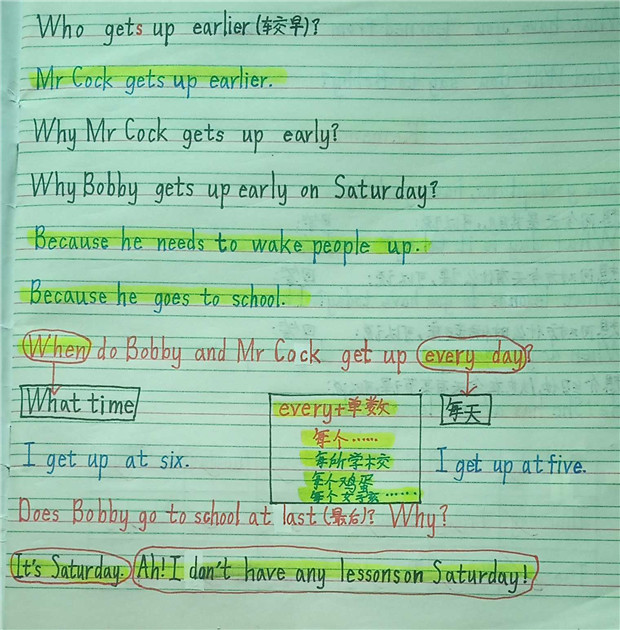 Who gets up earlier (较早)?
Mr Cock gets up earlier.
Why Mr Cock gets up early?
Why Bobby gets up early on Saturday?
Because he needs to wake people up.
Because he goes to school.
When do Bobby and Mr Cock get up every day?
What time
every+单数
每天
每个……
I get up at six.
每所学校
I get up at five.
每个鸡蛋
每个女孩……
Does Bobby go to school at last (最后)? Why?
It's Saturday. Ah! I don't have any lessons on Saturday!